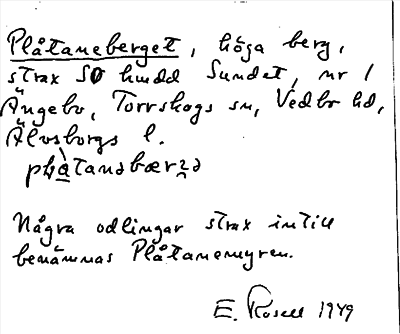 Plåtaneberget, höga berg,
strax SO hmdd Sundet, nr 1
Ängebo, Torrskogs sn, Vedbo hd,
Älvsborgs l.
Några odlingar strax intill
benämnas Plåtanemyren.
E. Rosell 1949